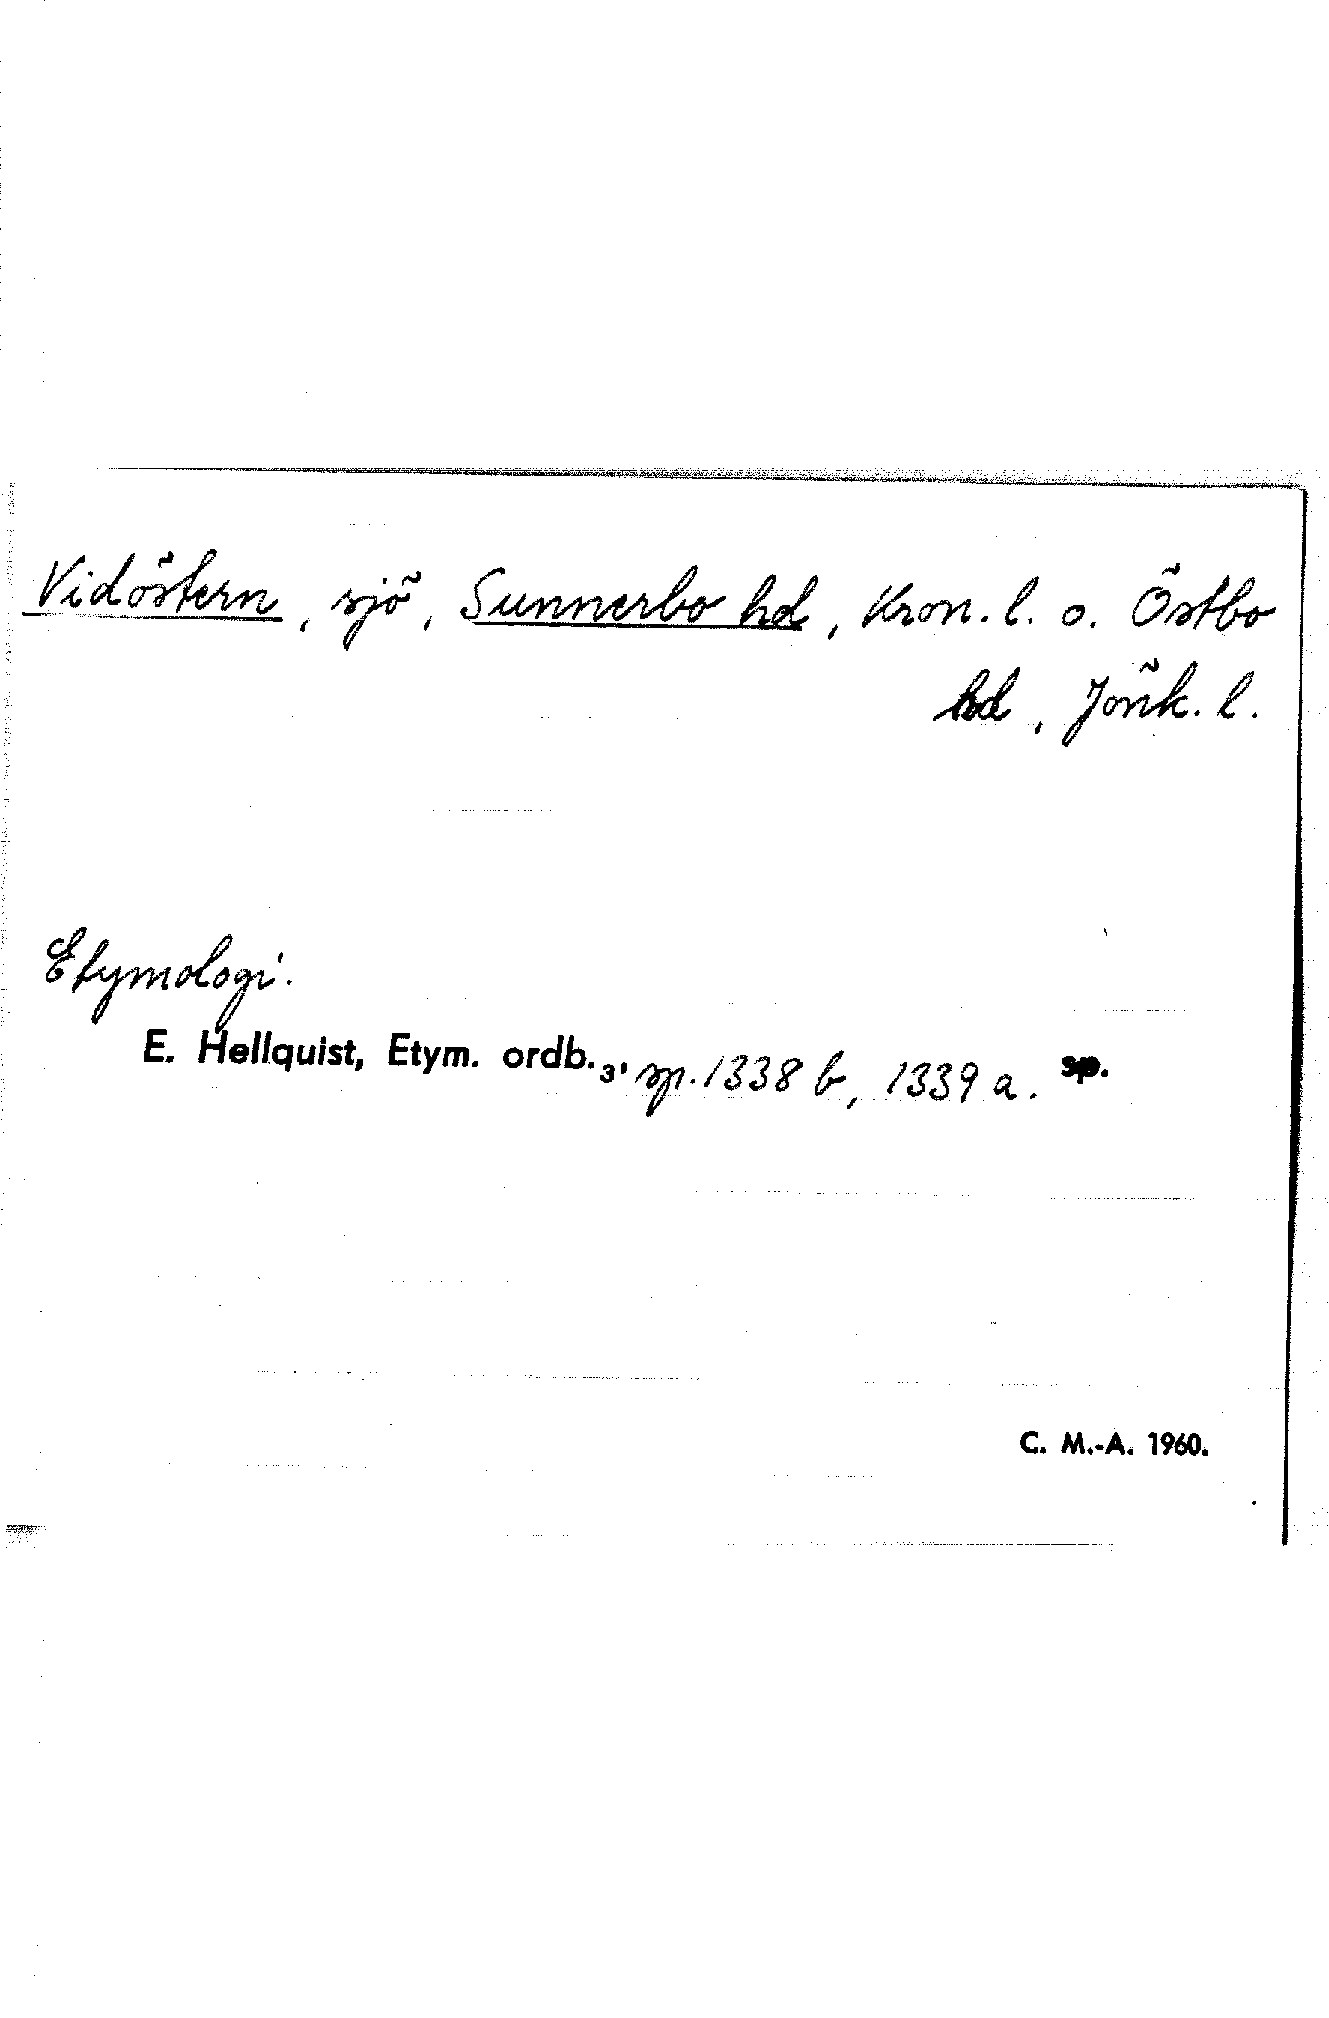 Vidöstern, sjö, Sunnerbo hd, Kron. l. o. Östbo
hd, Jönk. l.
Etymologi.
E. Hellquist, Etym. ordb.3, sp. 1338 b, 1339 a. sp.
C. M.-A. 1960.